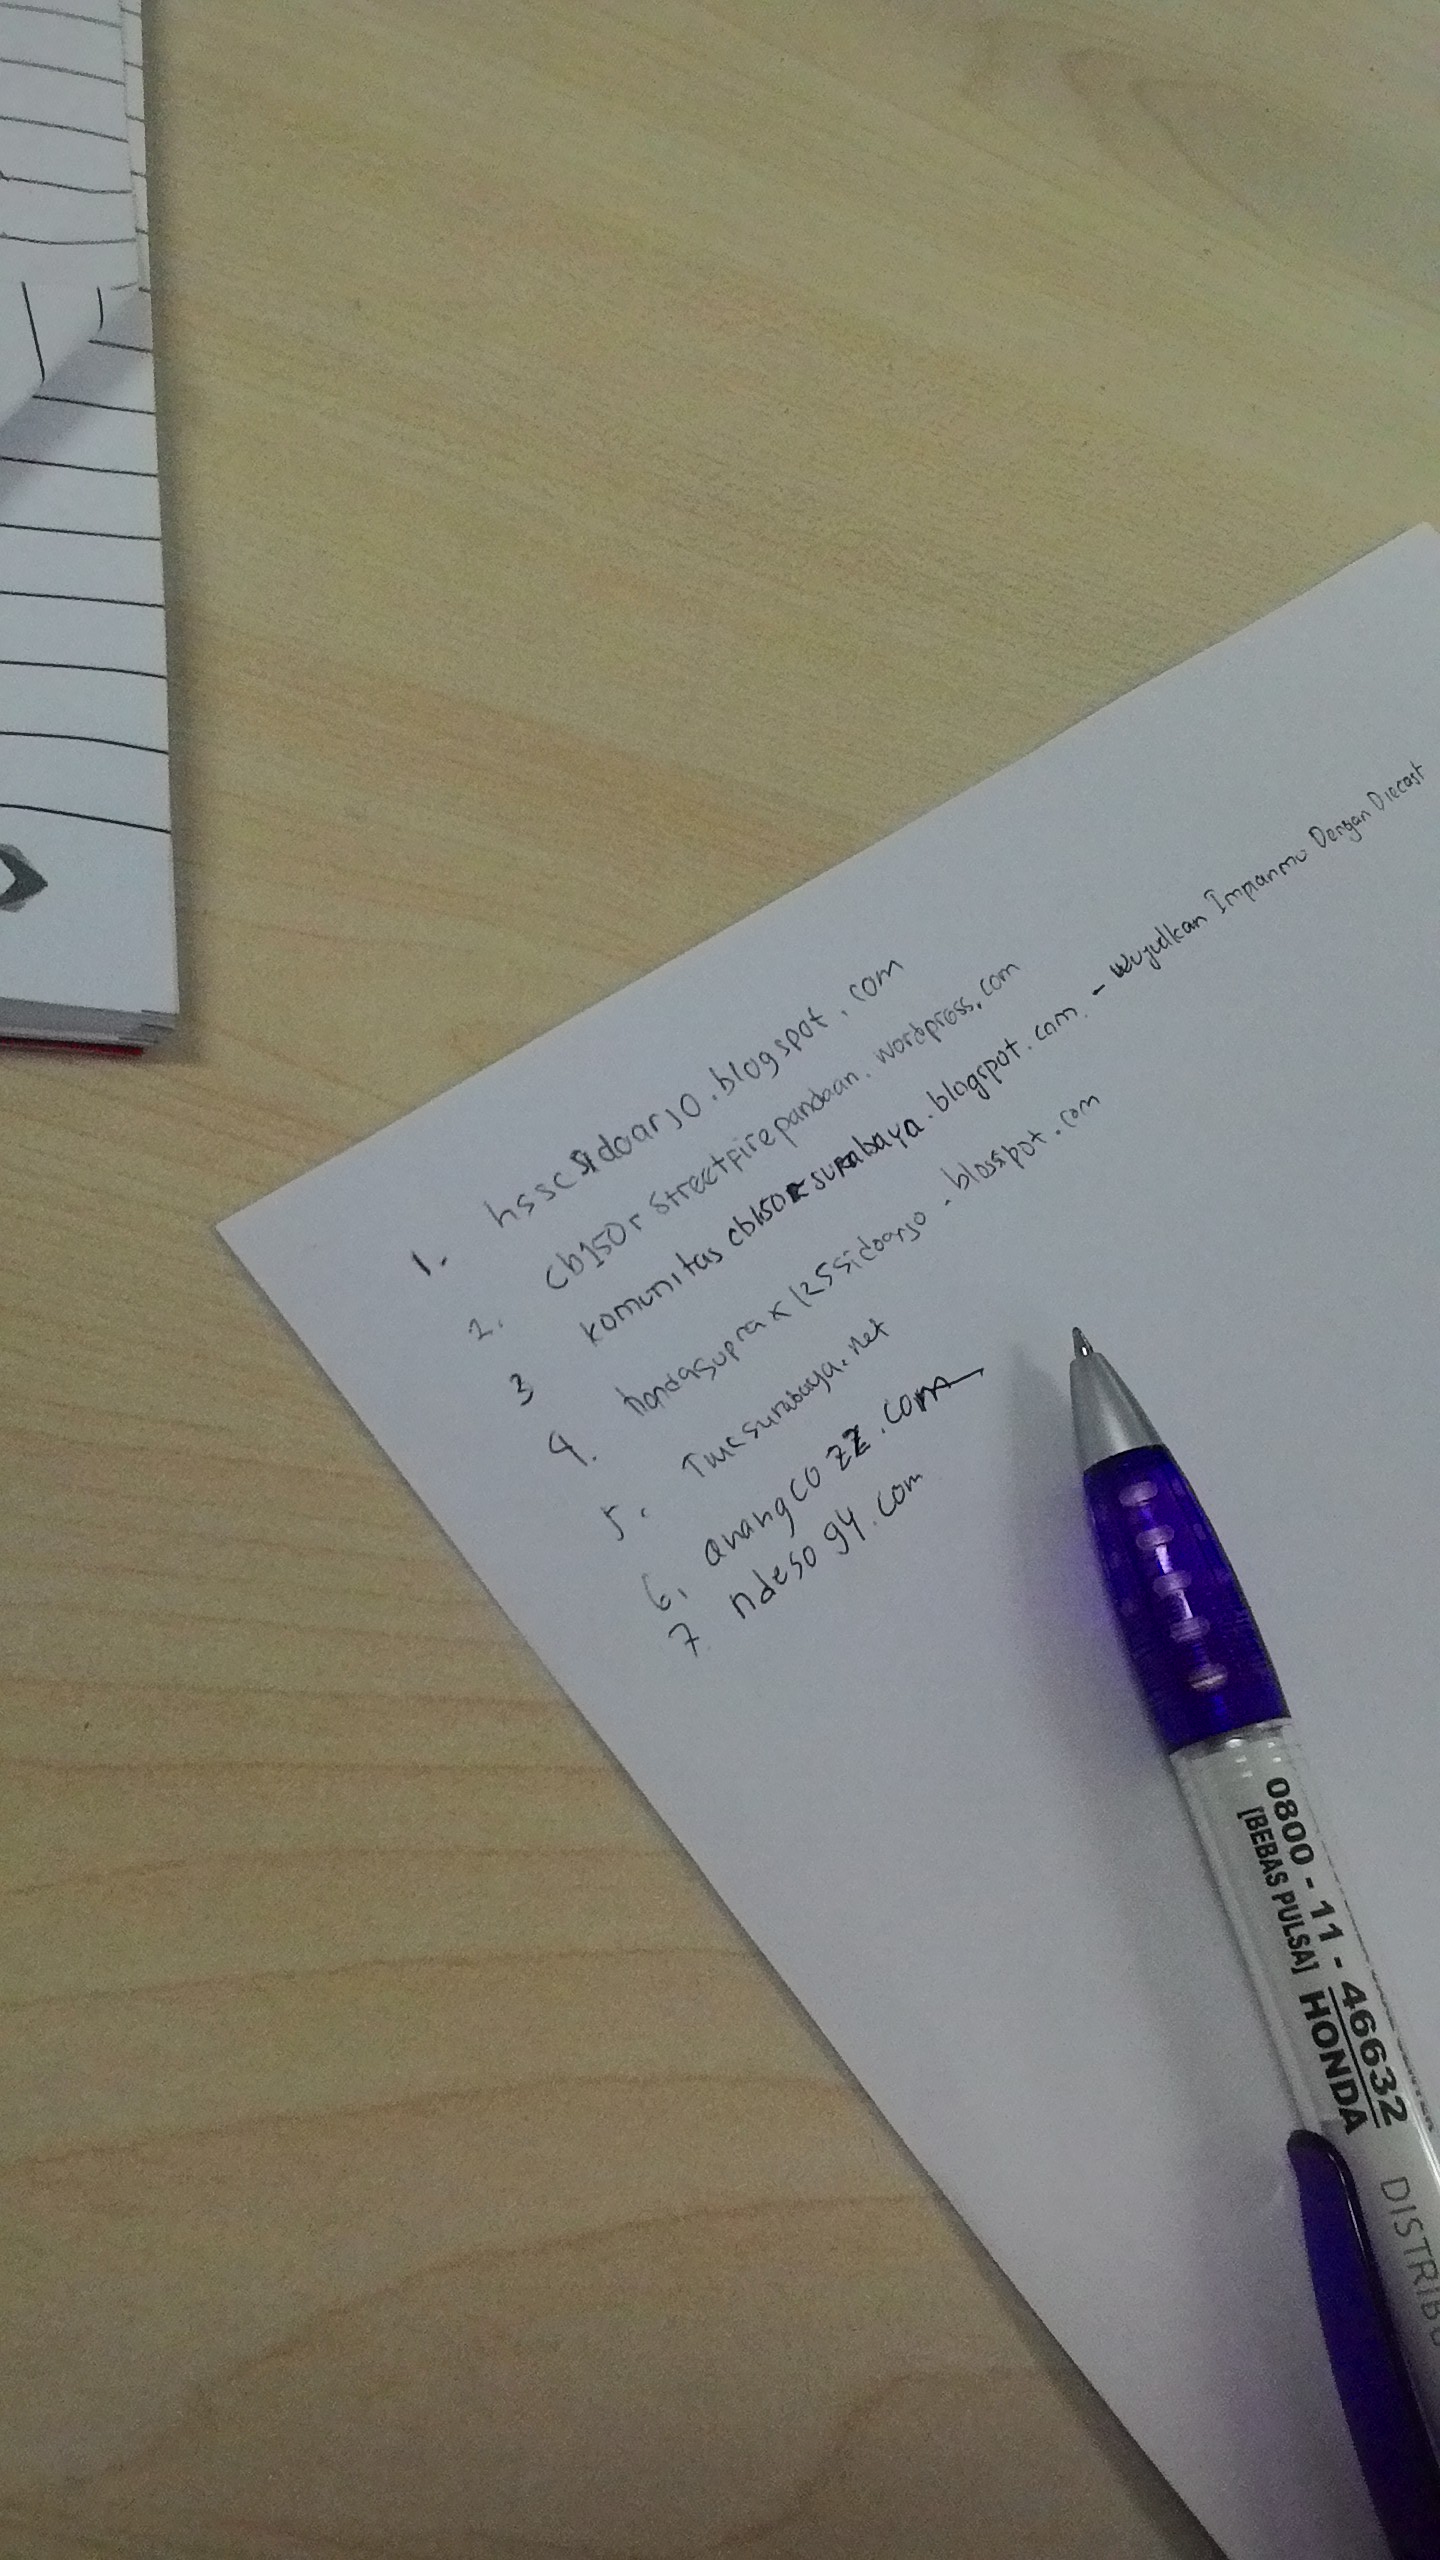 1. hsscsidoarjo.blogspot.com
2. cb150r streetfirepandaan.wordpress.com
3 komunitas cb150r surabaya.blogspot.com - Wujudkan Impianmu Dengan Diecast
4. hondasupra x 125 sidoarjo.blogspot.com
5. Tmcsurabaya.net
6. anangcozz.com
7. ndeso94.com
0800 - 11 - 46632
[BEBAS PULSA] HONDA